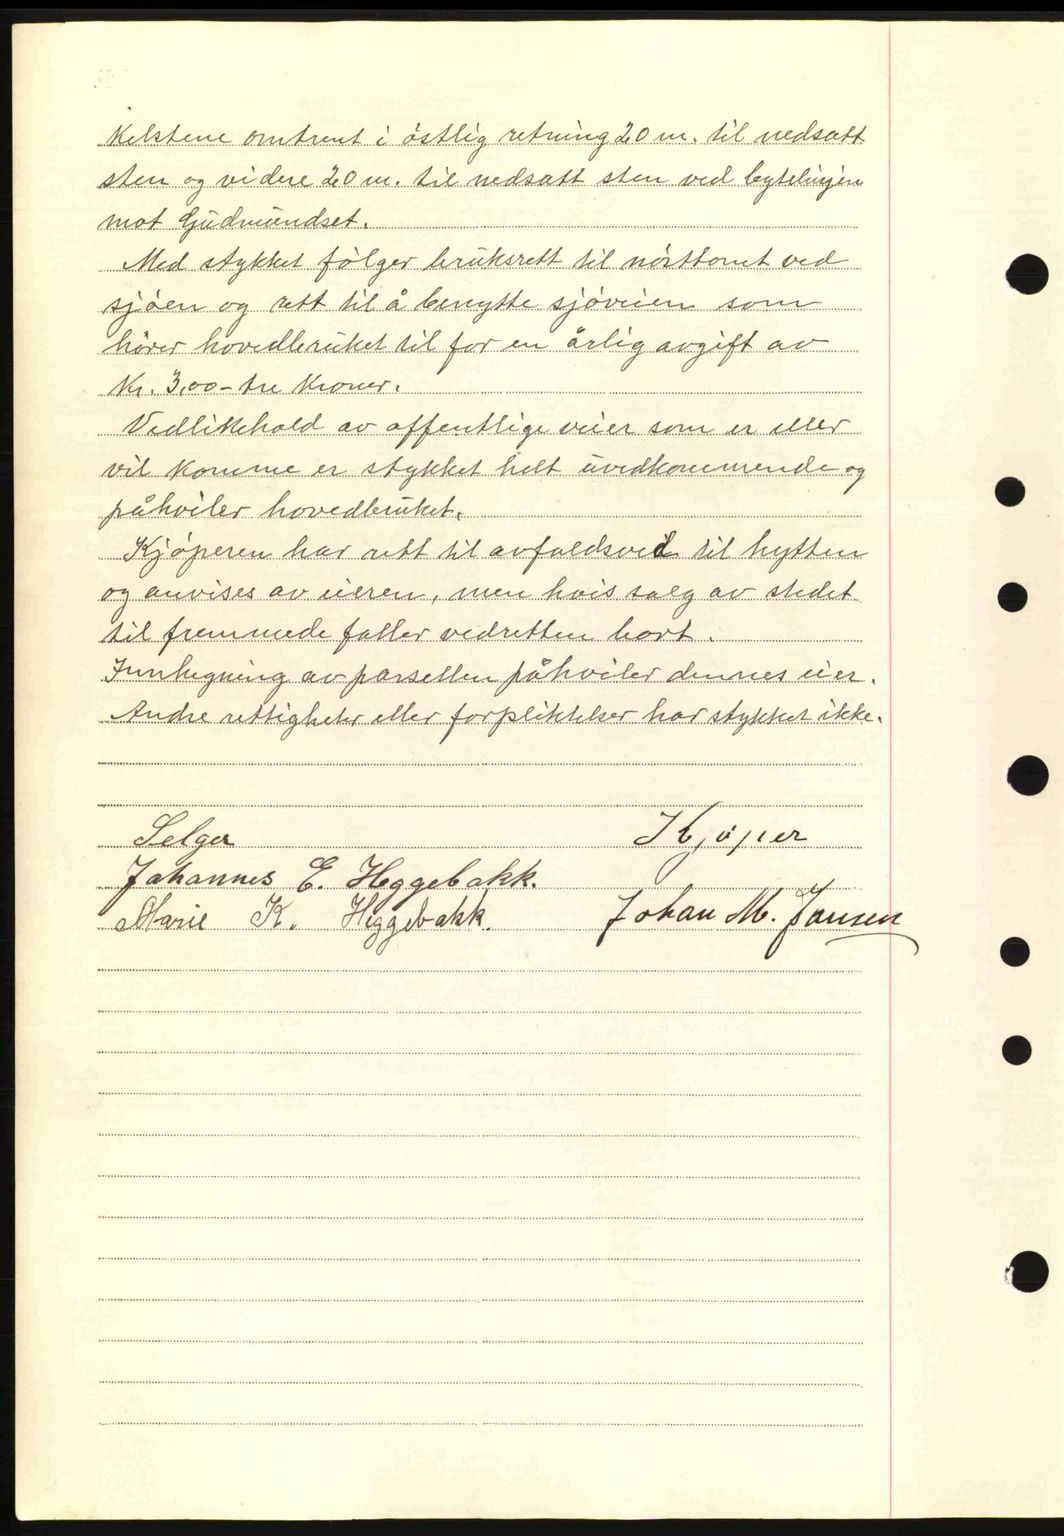 kelstene omtrent i östlig retning 20 m. til nedsatt
sten og videre 20 m. til nedsatt sten ved bytelinjen
mot Gudmundset.
Med stykket fölger bruksrett til ved
sjöen og rett til å benytte sjöveien som
hörer hovedbruket til for en årlig avgift av
Kr. 3,00 - tre kroner.
Vedlikehold av offentlige veier som er eller
vil komme er stykket helt uvedkommende og
påhviler hovedbruket.
Kjöperen har rett til avfaldsved til hytten
og anvises av eieren, men hvis salg av stedet
til fremmede faller vedretten bort.
Innhegning av parsellen påhviler dennes eier.
Andre rettigheter eller forpliktelser har stykket ikke.
Selger Kjöper
Johannes E. Heggebakk.
Marie K. Heggebakk. Johan M. Jansen